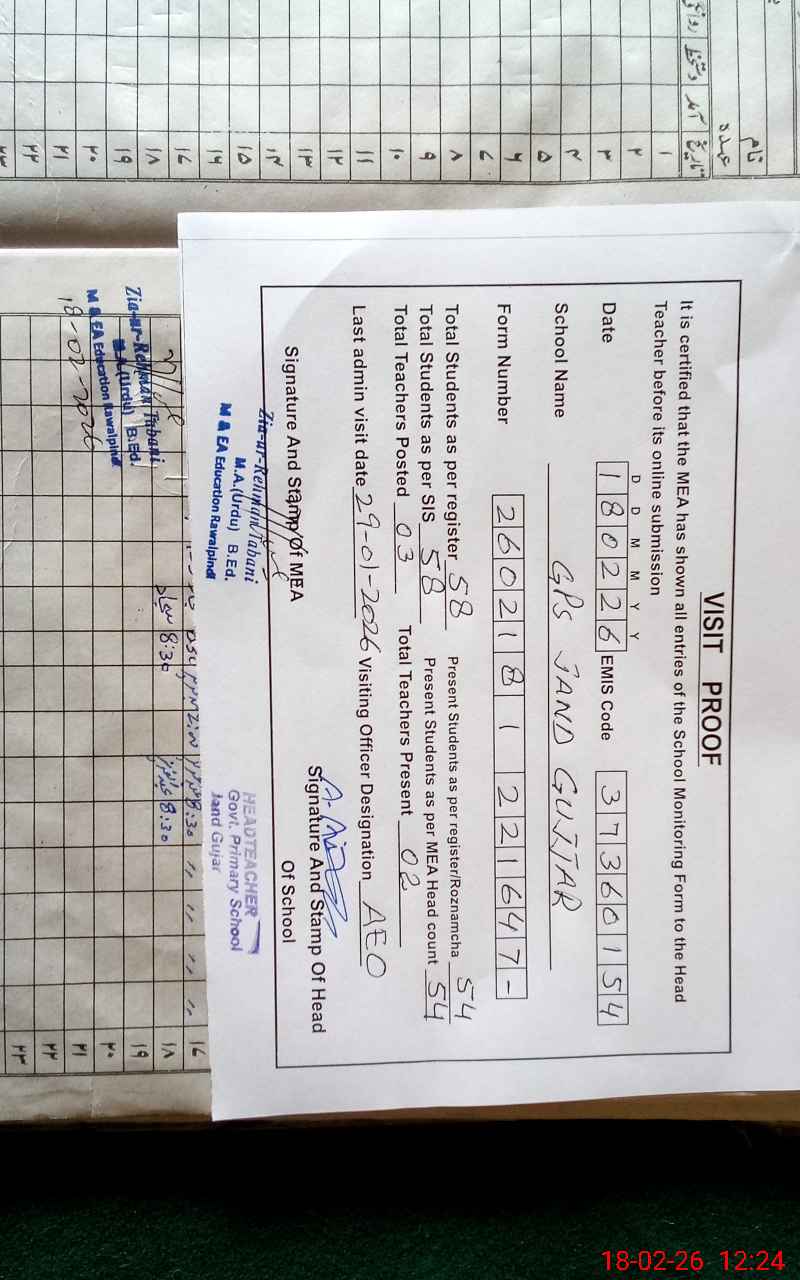 VISIT PROOF
It is certified that the MEA has shown all entries of the School Monitoring Form to the Head
Teacher before its online submission
D D M M Y Y
Date 180226 EMIS Code 37360154
School Name GPS JAND GUJJAR
Form Number 2602181221647-
Total Students as per register 58 Present Students as per register/Roznamcha 54
Total Students as per SIS 58 Present Students as per MEA Head count 54
Total Teachers Posted 03 Total Teachers Present 02
Last admin visit date 29-01-2026 Visiting Officer Designation AEO
Signature And Stamp Of MEA
Signature And Stamp Of Head
Of School
Zia-ur-Rehman Tabani
M.A.(Urdu) B.Ed.
M & EA Education Rawalpindi
HEADTEACHER
Govt. Primary School
Jand Gujar
Zia-ur-Rehman Tabani
M.A.(Urdu) B.Ed.
M & EA Education Rawalpindi
18-02-2026
نام
عہدہ
تاریخ آمد دستخط روانگی
۱
۲
۳
۴
۵
۶
۷
۸
۹
۱۰
۱۱
۱۲
۱۳
۱۴
۱۵
۱۶
۱۸
۱۹
۲۰
۲۱
۲۲
۲۳
8:30
8:30
8:30
۱۶
۱۸
۱۹
۲۰
۲۱
۲۲
۲۳
18-02-26 12:24